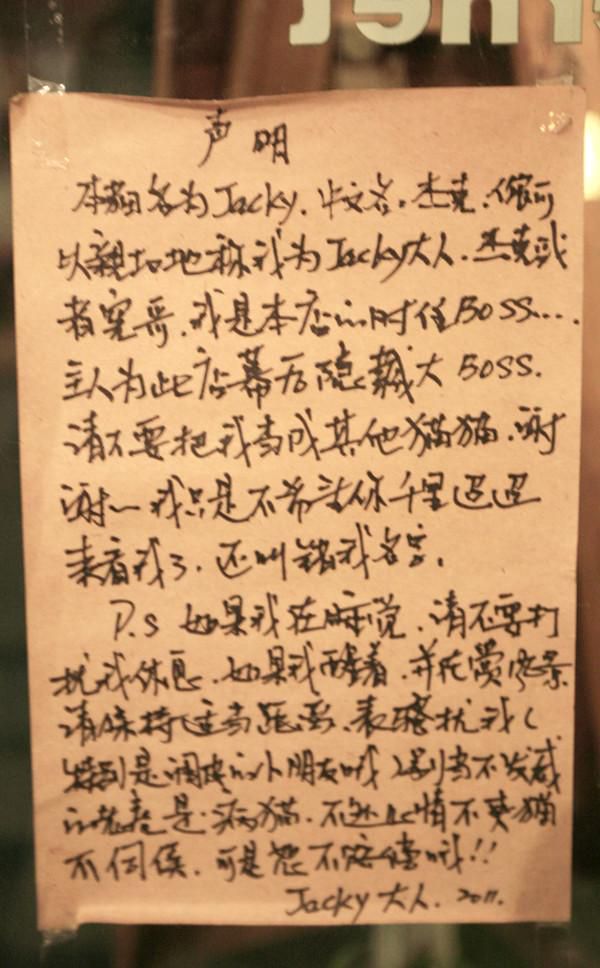 声明
本猫名为Jacky.中文名.杰克.你可
以亲切地称我为Jacky大人.杰克或
者宪哥.我是本店的时任BOSS....
主人为此店幕后隐藏大BOSS.
请不要把我当成其他猫猫.谢
谢~我只是不希望你千里迢迢
来看我了.还叫错我名字.
P.S 如果我在睡觉.请不要打
扰我休息.如果我醒着.并在赏风景
请保持适当距离.表骚扰我(
特别是调皮的小朋友哦)别当不发威
的老虎是病猫.不然此情不爽猫
不伺候.可是恕不赔偿哦!!
Jacky大人.2011.